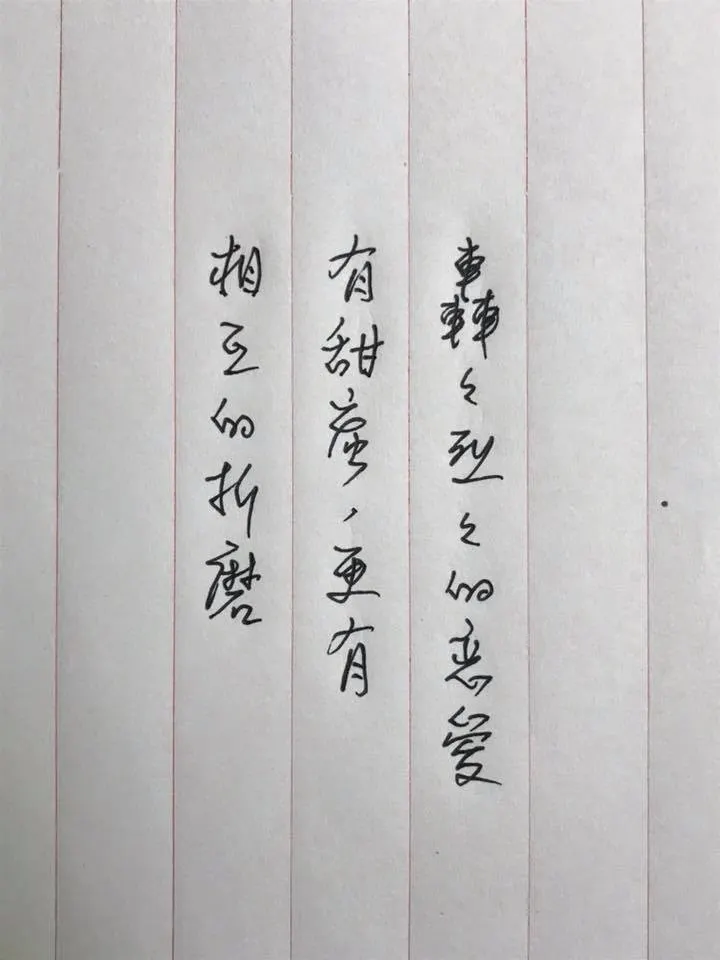 轟々烈々的恋愛
有甜蜜，更有
相互的折磨